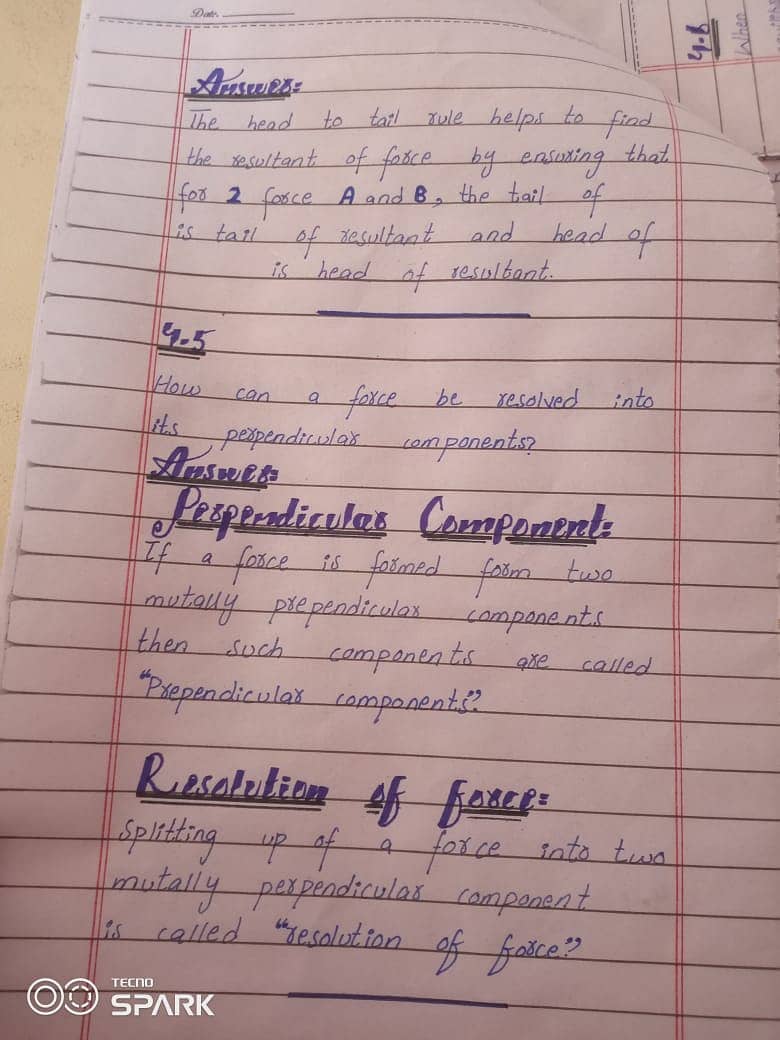 Date.
4.8
When
Answer:
The head to tail rule helps to find
the resultant of force by ensuring that
for 2 force A and B, the tail of
is tail of resultant and head of
is head of resultant.
4.5
How can a force be resolved into
its perpendicular components?
Answer:
Perpendicular Component:
If a force is formed form two
mutally prependicular components
then such components are called
"Prependicular components".
Resolution of force:
Splitting up of a force into two
mutally perpendicular component
is called "resolution of force"
TECNO
SPARK